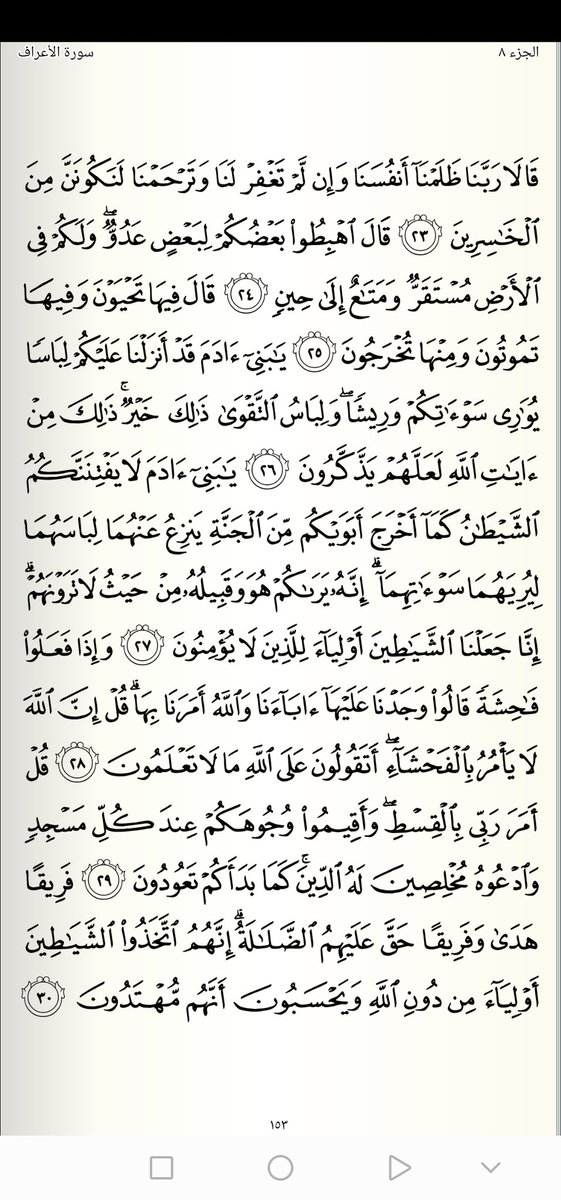 الجزء ٨
سورة الأعراف
قَالَا رَبَّنَا ظَلَمْنَآ أَنفُسَنَا وَإِن لَّمْ تَغْفِرْ لَنَا وَتَرْحَمْنَا لَنَكُونَنَّ مِنَ
ٱلْخَـٰسِرِينَ ٢٣ قَالَ ٱهْبِطُوا۟ بَعْضُكُمْ لِبَعْضٍ عَدُوٌّ ۖ وَلَكُمْ فِى
ٱلْأَرْضِ مُسْتَقَرٌّ وَمَتَـٰعٌ إِلَىٰ حِينٍ ٢٤ قَالَ فِيهَا تَحْيَوْنَ وَفِيهَا
تَمُوتُونَ وَمِنْهَا تُخْرَجُونَ ٢٥ يَـٰبَنِىٓ ءَادَمَ قَدْ أَنزَلْنَا عَلَيْكُمْ لِبَاسًا
يُوَٰرِى سَوْءَٰتِكُمْ وَرِيشًا ۖ وَلِبَاسُ ٱلتَّقْوَىٰ ذَٰلِكَ خَيْرٌ ۚ ذَٰلِكَ مِنْ
ءَايَـٰتِ ٱللَّهِ لَعَلَّهُمْ يَذَّكَّرُونَ ٢٦ يَـٰبَنِىٓ ءَادَمَ لَا يَفْتِنَنَّكُمُ
ٱلشَّيْطَـٰنُ كَمَآ أَخْرَجَ أَبَوَيْكُم مِّنَ ٱلْجَنَّةِ يَنزِعُ عَنْهُمَا لِبَاسَهُمَا
لِيُرِيَهُمَا سَوْءَٰتِهِمَآ ۗ إِنَّهُۥ يَرَىٰكُمْ هُوَ وَقَبِيلُهُۥ مِنْ حَيْثُ لَا تَرَوْنَهُمْ ۗ
إِنَّا جَعَلْنَا ٱلشَّيَـٰطِينَ أَوْلِيَآءَ لِلَّذِينَ لَا يُؤْمِنُونَ ٢٧ وَإِذَا فَعَلُوا۟
فَـٰحِشَةً قَالُوا۟ وَجَدْنَا عَلَيْهَآ ءَابَآءَنَا وَٱللَّهُ أَمَرَنَا بِهَا ۗ قُلْ إِنَّ ٱللَّهَ
لَا يَأْمُرُ بِٱلْفَحْشَآءِ ۖ أَتَقُولُونَ عَلَى ٱللَّهِ مَا لَا تَعْلَمُونَ ٢٨ قُلْ
أَمَرَ رَبِّى بِٱلْقِسْطِ ۖ وَأَقِيمُوا۟ وُجُوهَكُمْ عِندَ كُلِّ مَسْجِدٍ
وَٱدْعُوهُ مُخْلِصِينَ لَهُ ٱلدِّينَ ۚ كَمَا بَدَأَكُمْ تَعُودُونَ ٢٩ فَرِيقًا
هَدَىٰ وَفَرِيقًا حَقَّ عَلَيْهِمُ ٱلضَّلَـٰلَةُ ۗ إِنَّهُمُ ٱتَّخَذُوا۟ ٱلشَّيَـٰطِينَ
أَوْلِيَآءَ مِن دُونِ ٱللَّهِ وَيَحْسَبُونَ أَنَّهُم مُّهْتَدُونَ ٣٠
١٥٣